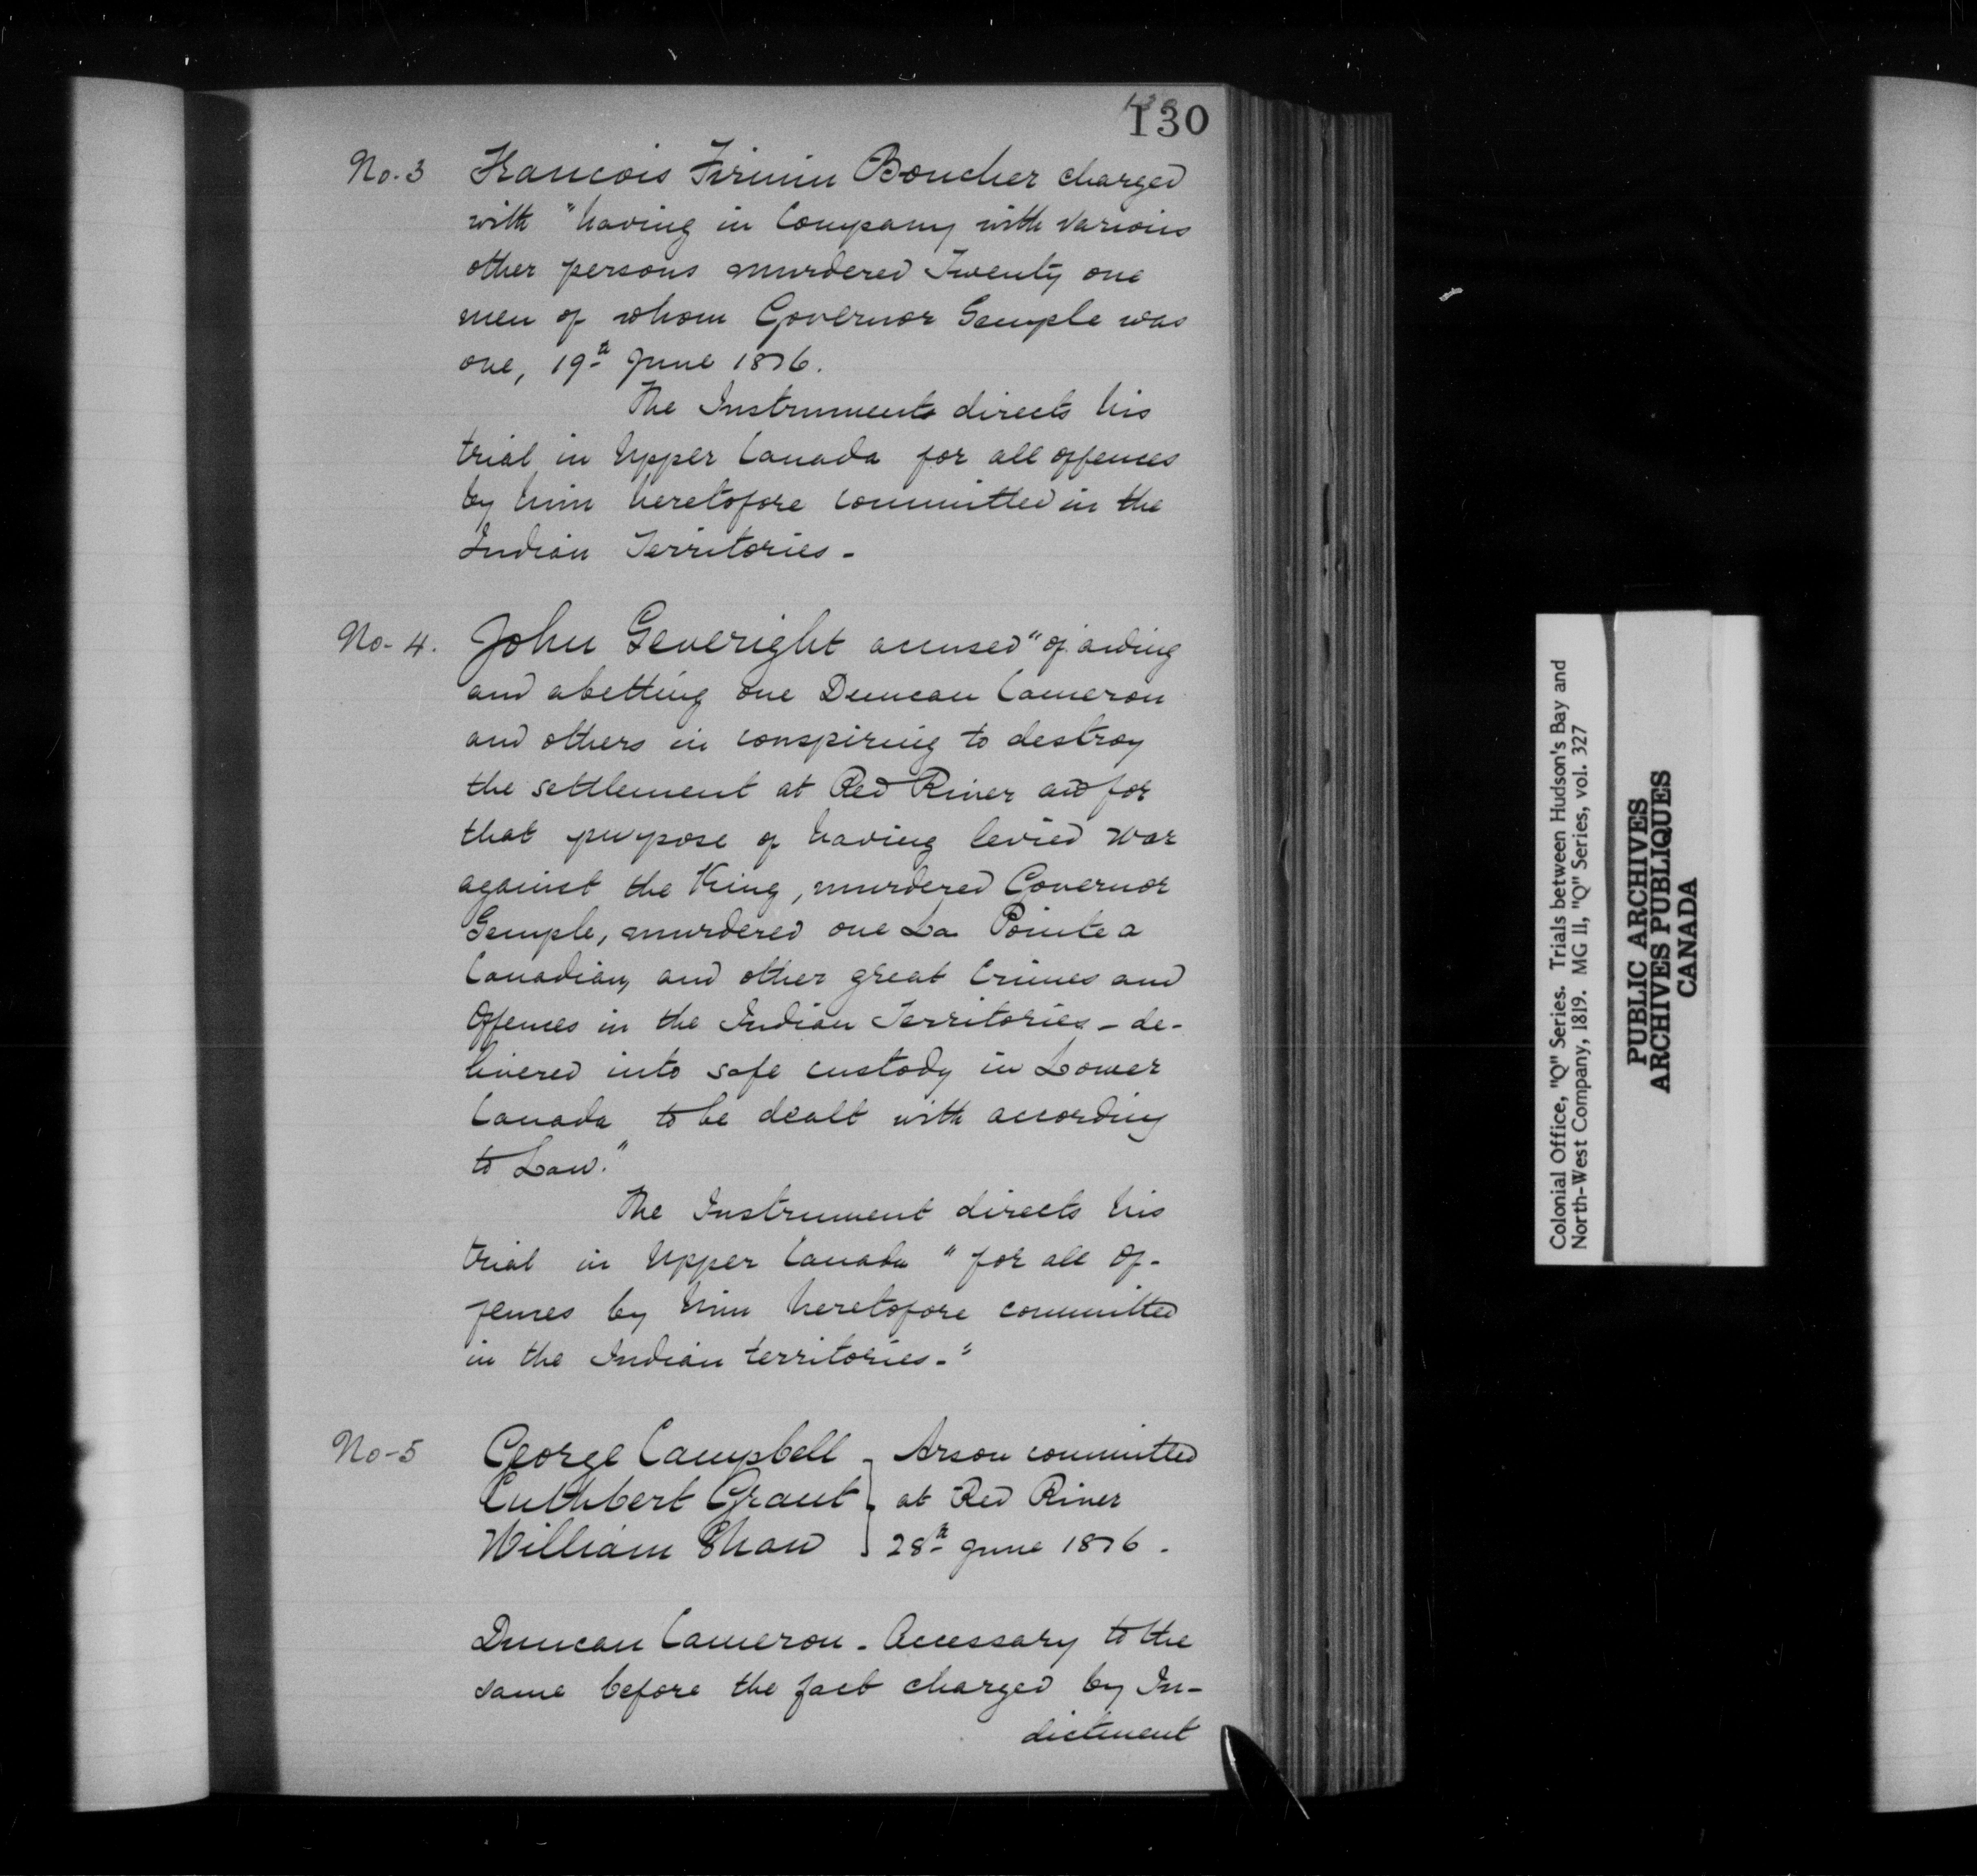 130
No. 3 Francois Firmin Boucher charged
with "having in Company with various
other persons murdered Twenty one
men of whom Governor Semple was
one, 19th June 1816.
The Instruments directs his
trial in Upper Canada for all offences
by him heretofore committed in the
Indian Territories -
No. 4. John Severight accused "of aiding
and abetting one Duncan Cameron
and others in conspiring to destroy
the settlement at Red River and for
that purpose of having levied war
against the King, murdered Governor
Semple, murdered one La Pointe a
Canadian, and other great Crimes and
Offences in the Indian Territories - de-
livered into safe custody in Lower
Canada to be dealt with according
to Law."
The Instrument directs his
trial in Upper Canada "for all of-
fences by him heretofore committed
in the Indian territories."
No-5 George Campbell } Arson committed
Cuthbert Grant } at Red River
William Shaw } 28th June 1816.
Duncan Cameron - Accessary to the
same before the fact charged by In-
dictment
Colonial Office, "Q" Series. Trials between Hudson's Bay and
North-West Company, 1819. MG II, "Q" Series, vol. 327
PUBLIC ARCHIVES
ARCHIVES PUBLIQUES
CANADA